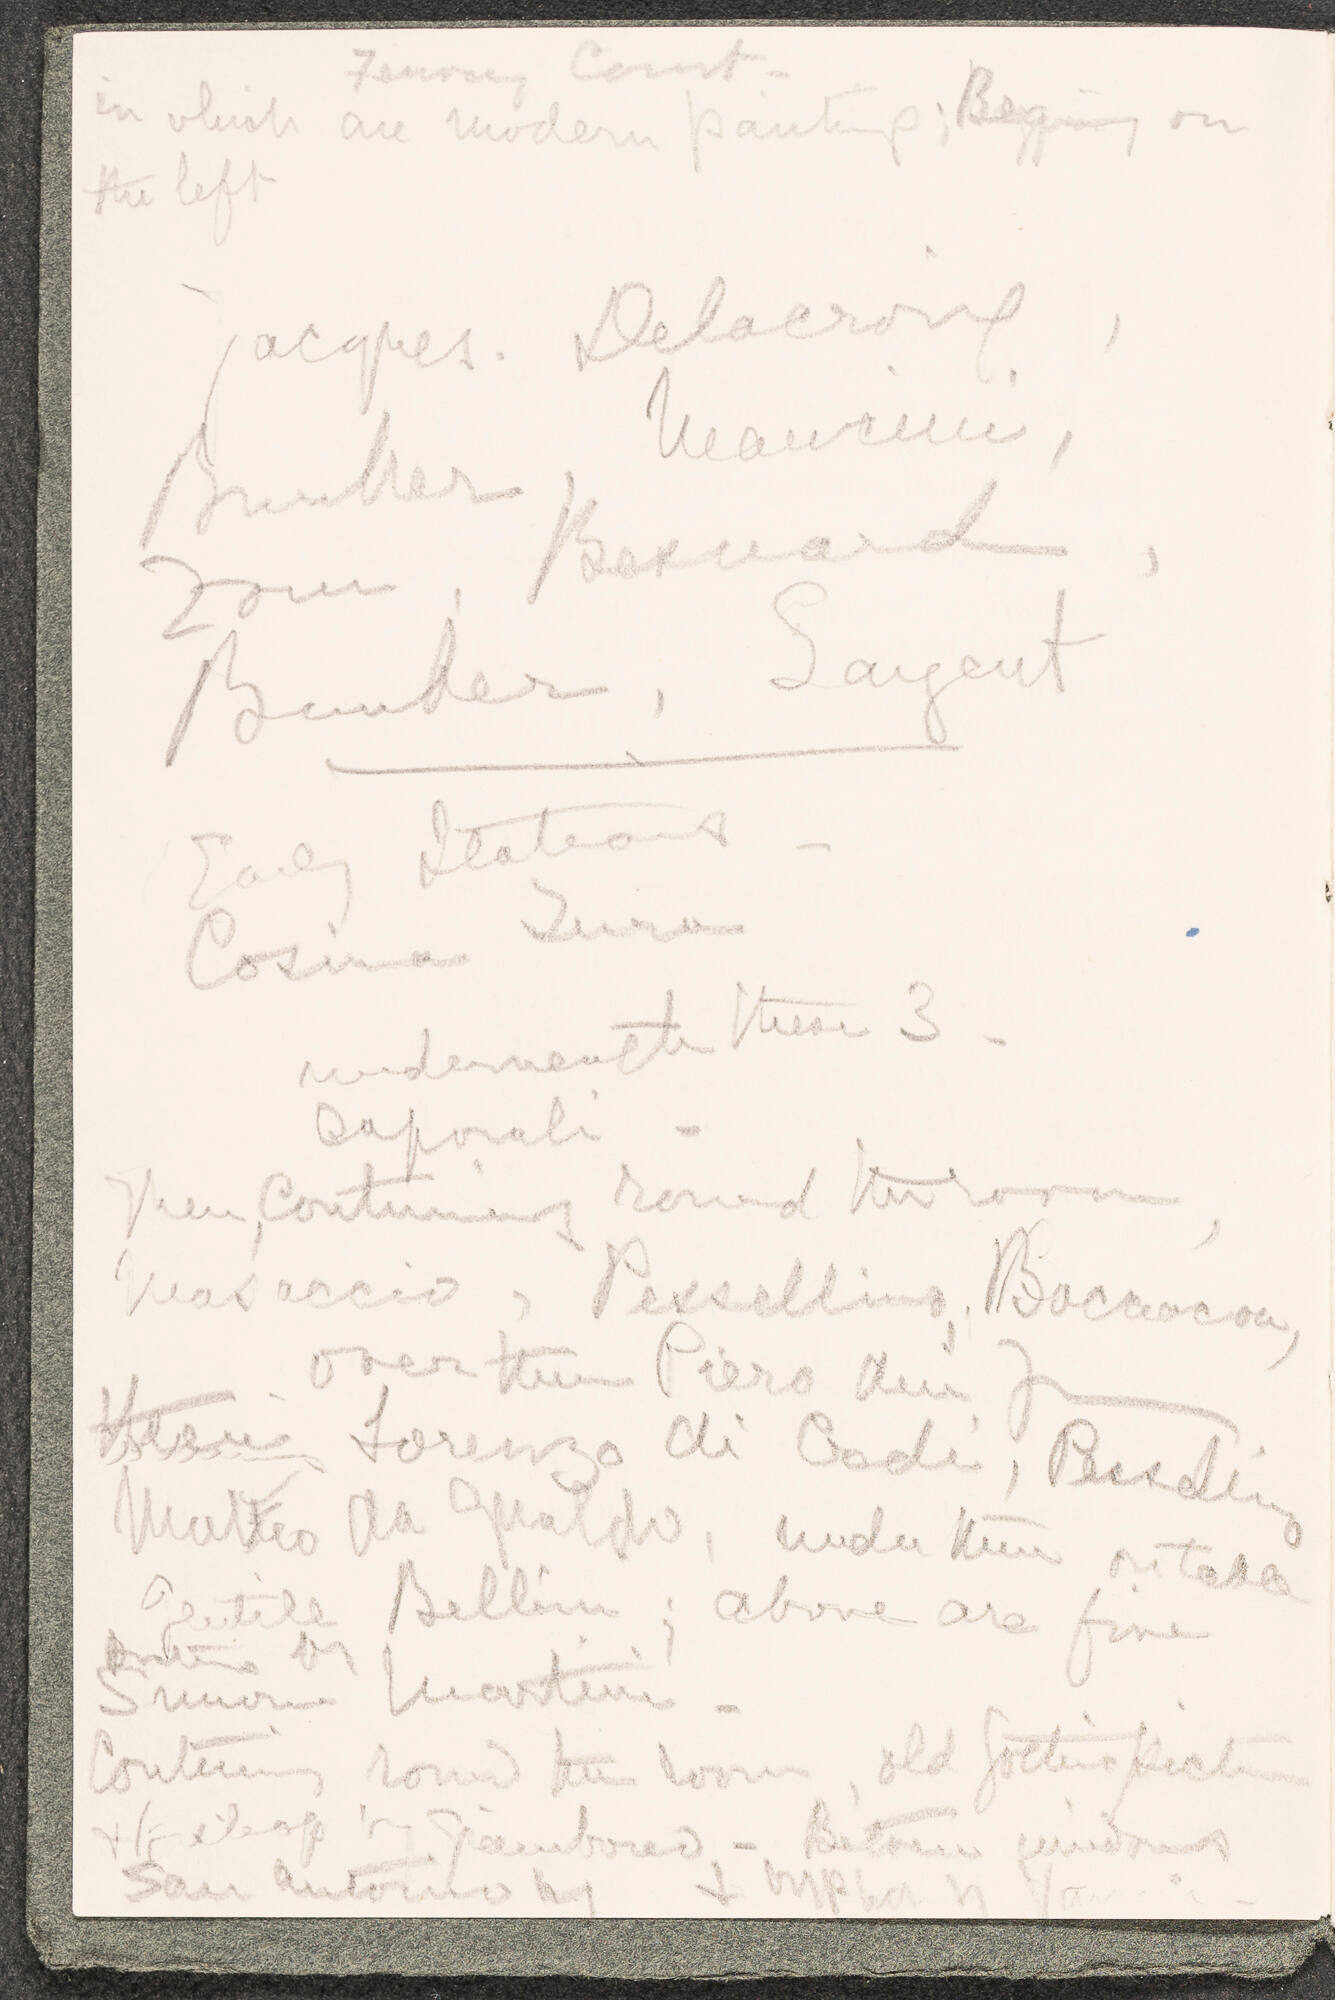 Fenway Court -
in which are modern paintings; Begging on
the left
Jacques. Delacroix,
Bunker, Mancini,
Zorn, Besnard,
Bunker, Sargent
Early Italians -
Cosima Tura
underneath these 3 -
Caporali -
Then, continuing round the room,
Masaccio, Pessellino, Boccaccou,
over them Piero dei F
Lorenzo di Credi, Pesselino
Matteo da Gualdo, under them on table
Gentile Bellini; above are five
Simone Martini -
Continuing round the room, old Gothic picture
Giambono - Between windows
San Antonio by &